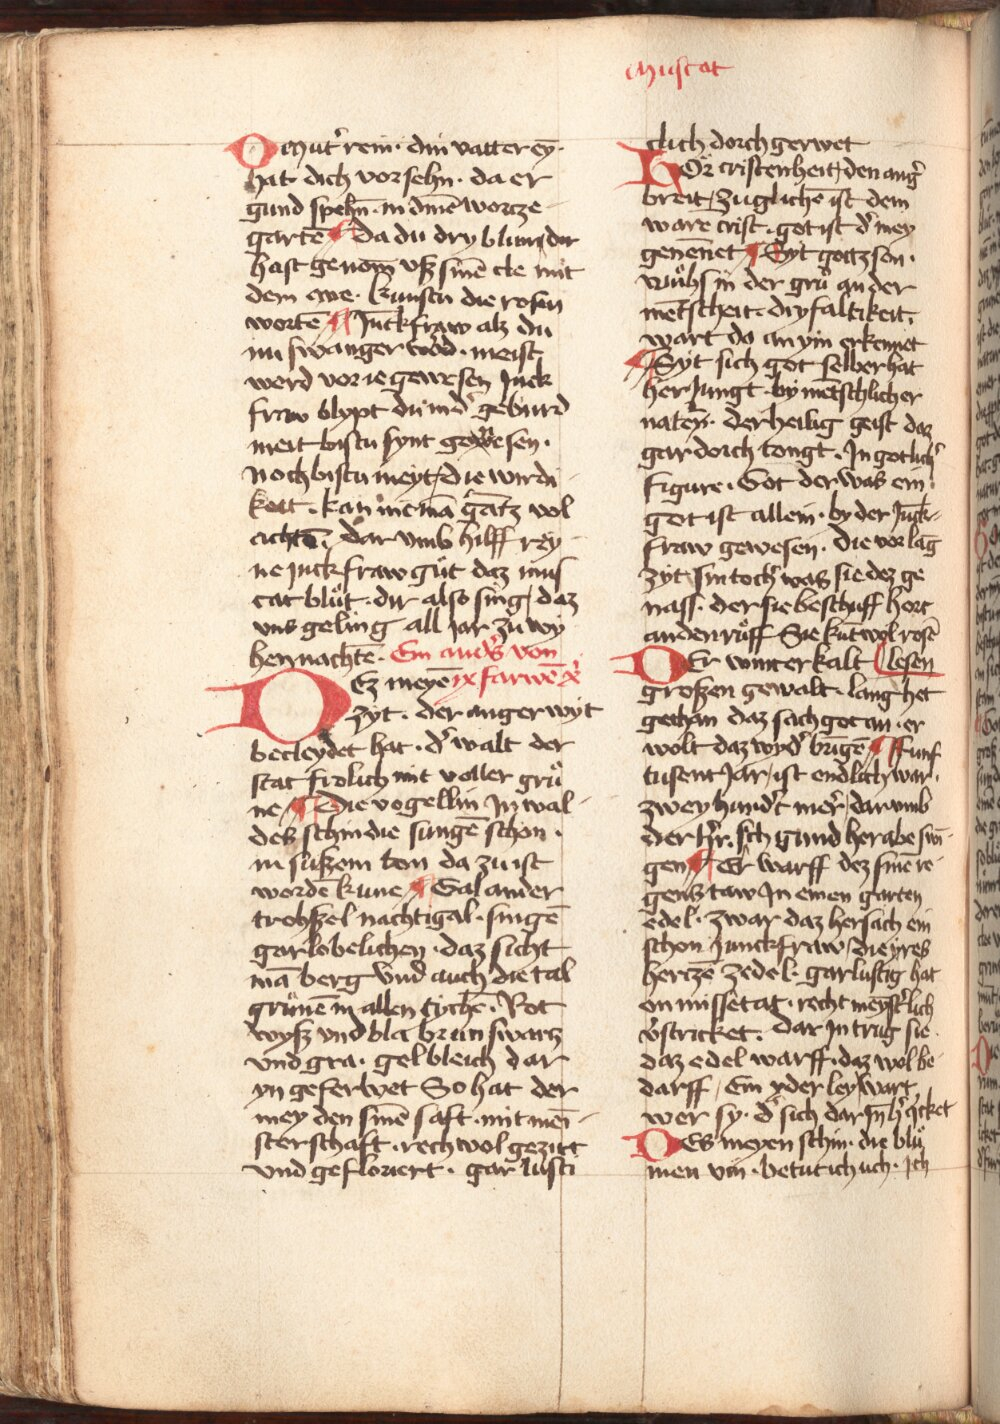 Muscat
O Mut'r rein · din vatter ey ·
hat dich vorsehn · da er
gund spehn̄ · in dinē worcze
gartē ¶ Da du dry blumdir
hast genom̄ vß sinē cle mit
dem awe · kunstu die rosin
wortē ¶ Juckfraw alz du
nu swanger w'd · meist
werd vor ie gewesen Juck
fraw blypt du ind' geburd
meit bistu synt gewesen ·
Noch bistu meyt / die wirdi
keit · kan niemā gātz vol
achtē · dar vmb hilff rey
ne Juckfraw gůt daz mus
cat blůt · dir also sing / daz
vns geling all Jar zu wy
hennachtē · Ein and's von
DEz meyē ix farwē x
zyt · der anger wyt
becleydet hat · d' walt der
stat frolich mit voller grů
ne ¶ Die vogellin In wal
deß schin die singē schon ·
in sußem ton da zu ist
wordē kune ¶ Galander
trohßel nachtigal · singē
gar lobelichen · daz sicht
mā berg vnd auch die tal
grůnē in allen tychē · Rot
wyß vnd bla brun swartz
vnd gra · gel bleich dar
yn geferwet So hat der
mey den sinē saft · mit mei
sterschaft · rech wol geziirt
vnd gefloriert · gar lusti
clich dorch gerwet
HOr cristenheit / den ang'
breit / zuglichē ist dem
warē crist · got ist d' mey
genēnet ¶ Syt gottz son ·
wůhs in der grů an der
mētscheit · dryfaltikeit ·
wart do an yin erkennet
¶ Syt sich got selber hat
her Jungt · by mētschlicher
naten · der heilig geist daz
gar dorch tongt · In gotlich'
figure · Got der was ein ·
got ist allein · by der Juck
fraw gewesen · die vor lāg
zyt sin toch' was sie dez ge
nass · der sie beschuff hort
an den růff Sie kūt wol rost'
DEr winter kalt ⸿ lesen
großen gewalt · lang het
gethan daz sach got an · er
wolt daz wyd' brīgē ¶ Funf
tusent Jar / ist endlich war ·
zwey hund't mer / dar vmb
der h'r · sich gund her abe swi
gen ¶ Er warff dez sinē re
gens taw In einen garten
edel · zwar daz hersach ein
schon Junckfraw / die yres
hertzē zedel · gar lustig hat
on missetat · recht meyst'lich
v'stricket · dar In trug sie
daz edel warff · daz wol be
darff / Ein yder ley wart
wer sy · d' sich dar In h'q'cket
DEs meyen schin · die blů
men vin · betut ich uch · Ich